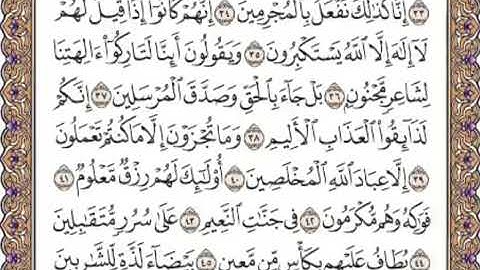 ٣٣ إِنَّا كَذَٰلِكَ نَفْعَلُ بِالْمُجْرِمِينَ ٣٤ إِنَّهُمْ كَانُوا إِذَا قِيلَ لَهُمْ
لَا إِلَٰهَ إِلَّا اللَّهُ يَسْتَكْبِرُونَ ٣٥ وَيَقُولُونَ أَئِنَّا لَتَارِكُوا آلِهَتِنَا
لِشَاعِرٍ مَّجْنُونٍ ٣٦ بَلْ جَاءَ بِالْحَقِّ وَصَدَّقَ الْمُرْسَلِينَ ٣٧ إِنَّكُمْ
لَذَائِقُوا الْعَذَابِ الْأَلِيمِ ٣٨ وَمَا تُجْزَوْنَ إِلَّا مَا كُنتُمْ تَعْمَلُونَ
٣٩ إِلَّا عِبَادَ اللَّهِ الْمُخْلَصِينَ ٤٠ أُولَٰئِكَ لَهُمْ رِزْقٌ مَّعْلُومٌ ٤١
فَوَاكِهُ وَهُم مُّكْرَمُونَ ٤٢ فِي جَنَّاتِ النَّعِيمِ ٤٣ عَلَىٰ سُرُرٍ مُّتَقَابِلِينَ
٤٤ يُطَافُ عَلَيْهِم بِكَأْسٍ مِّن مَّعِينٍ ٤٥ بَيْضَاءَ لَذَّةٍ لِّلشَّارِبِينَ